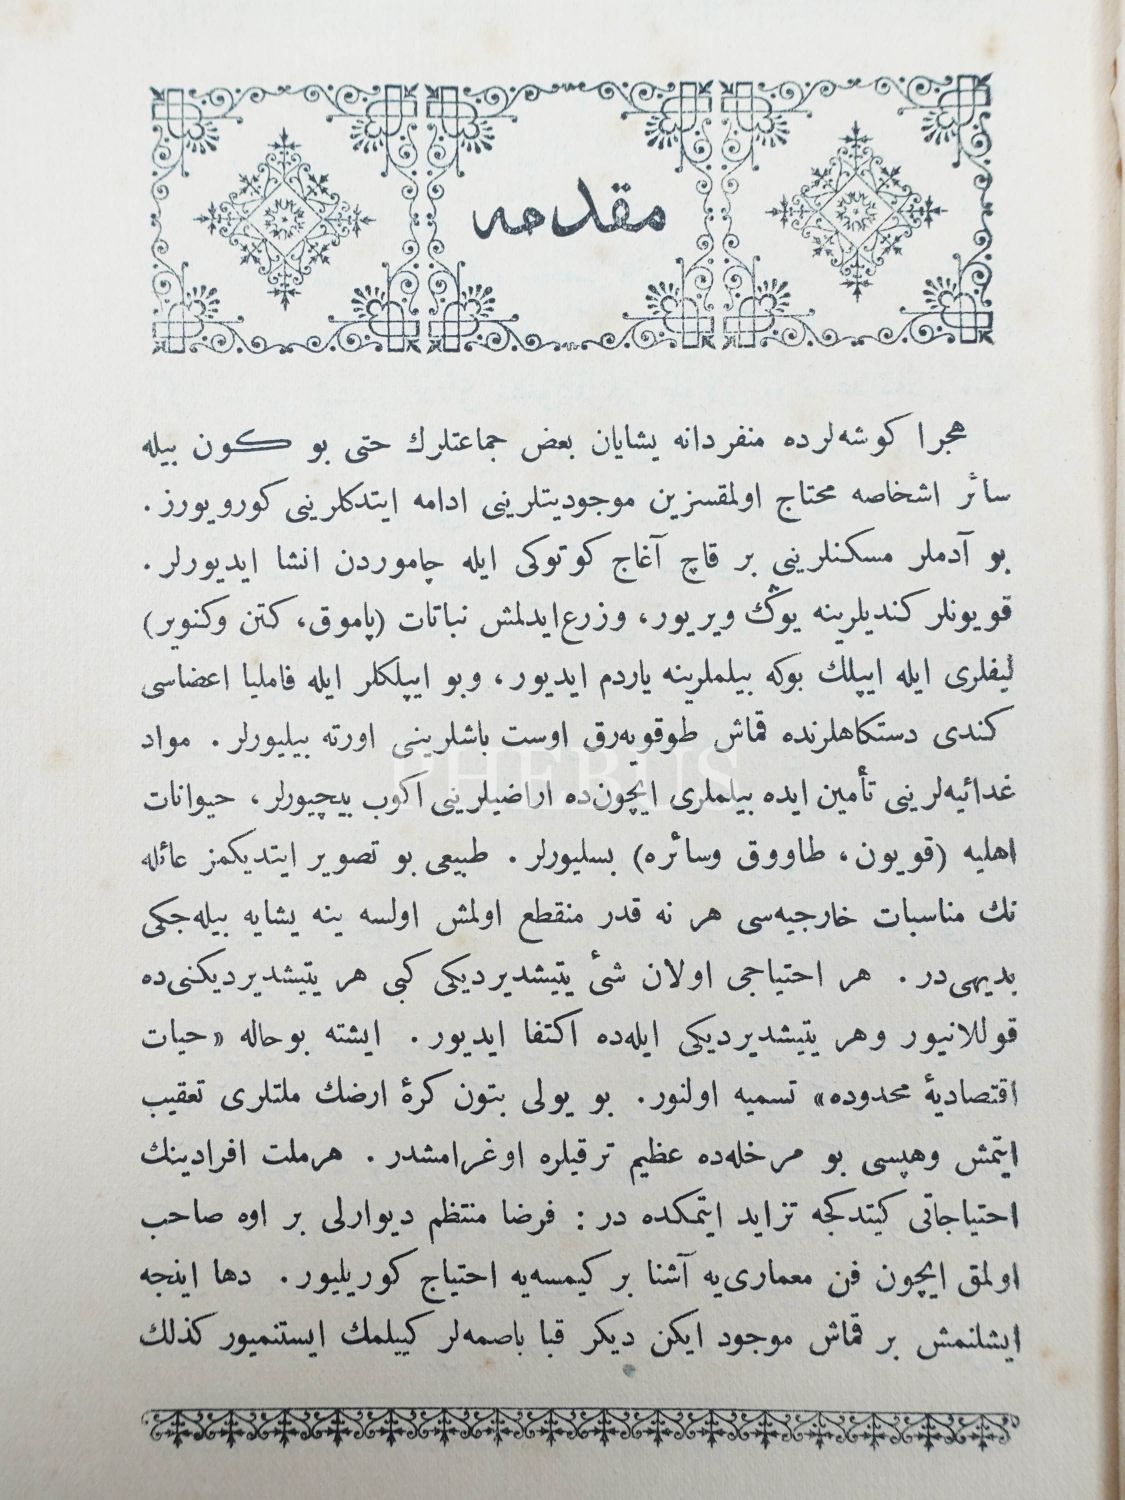 مقدمه
هجرا كوشه‌لرده منفردانه يشايان بعض جماعتلرك حتى بو كون بيله
سائر اشخاصه محتاج اولمقسزين موجوديتلرينى ادامه ايتدكلرينى كورويورز.
بو آدملر مسكنلرينى بر قاچ آغاج كوتوكى ايله چاموردن انشا ايديورلر.
قويونلر كنديلرينه يوڭ ويريور، وزرع‌ايدلمش نباتات (پاموق، كتن وكنوير)
ليفلرى ايله ايپلك بوكه بيلملرينه ياردم ايديور، وبو ايپلكلر ايله فاميليا اعضاسى
كندى دستكاهلرنده قماش طوقويه‌رق اوست باشلرينى اورته بيليورلر. مواد
غدائيه‌لرينى تأمين ايده بيلملرى ايچون‌ده اراضيلرينى اكوب بيچيورلر، حيوانات
اهليه (قويون، طاووق وسائره) بسليورلر. طبيعى بو تصوير ايتديكمز عائله
نك مناسبات خارجيه‌سى هر نه قدر منقطع اولمش اولسه ينه يشايه بيله‌جكى
بديهى‌در. هر احتياجى اولان شئ يتيشديرديكى كبى هر يتيشديرديكنى‌ده
قوللانيور وهر يتيشديرديكى ايله‌ده اكتفا ايديور. ايشته بوحاله «حيات
اقتصاديۀ محدوده» تسميه اولنور. بو يولى بتون كرۀ ارضك ملتلرى تعقيب
ايتمش وهپسى بو مرحله‌ده عظيم ترقيلره اوغرامشدر. هرملت افرادينك
احتياجاتى كيتدكجه تزايد ايتمكده در: فرضا منتظم ديوارلى بر اوه صاحب
اولمق ايچون فن معمارى‌يه آشنا بر كيمسه‌يه احتياج كوريليور. دها اينجه
ايشلنمش بر قماش موجود ايكن ديكر قبا باصمه‌لر كييلمك ايستنميور كذلك
PHEBUS